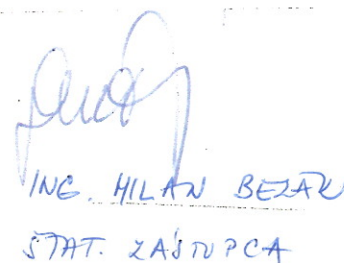 ING. MILAN BEZÁK
ŠTAT. ZÁSTUPCA